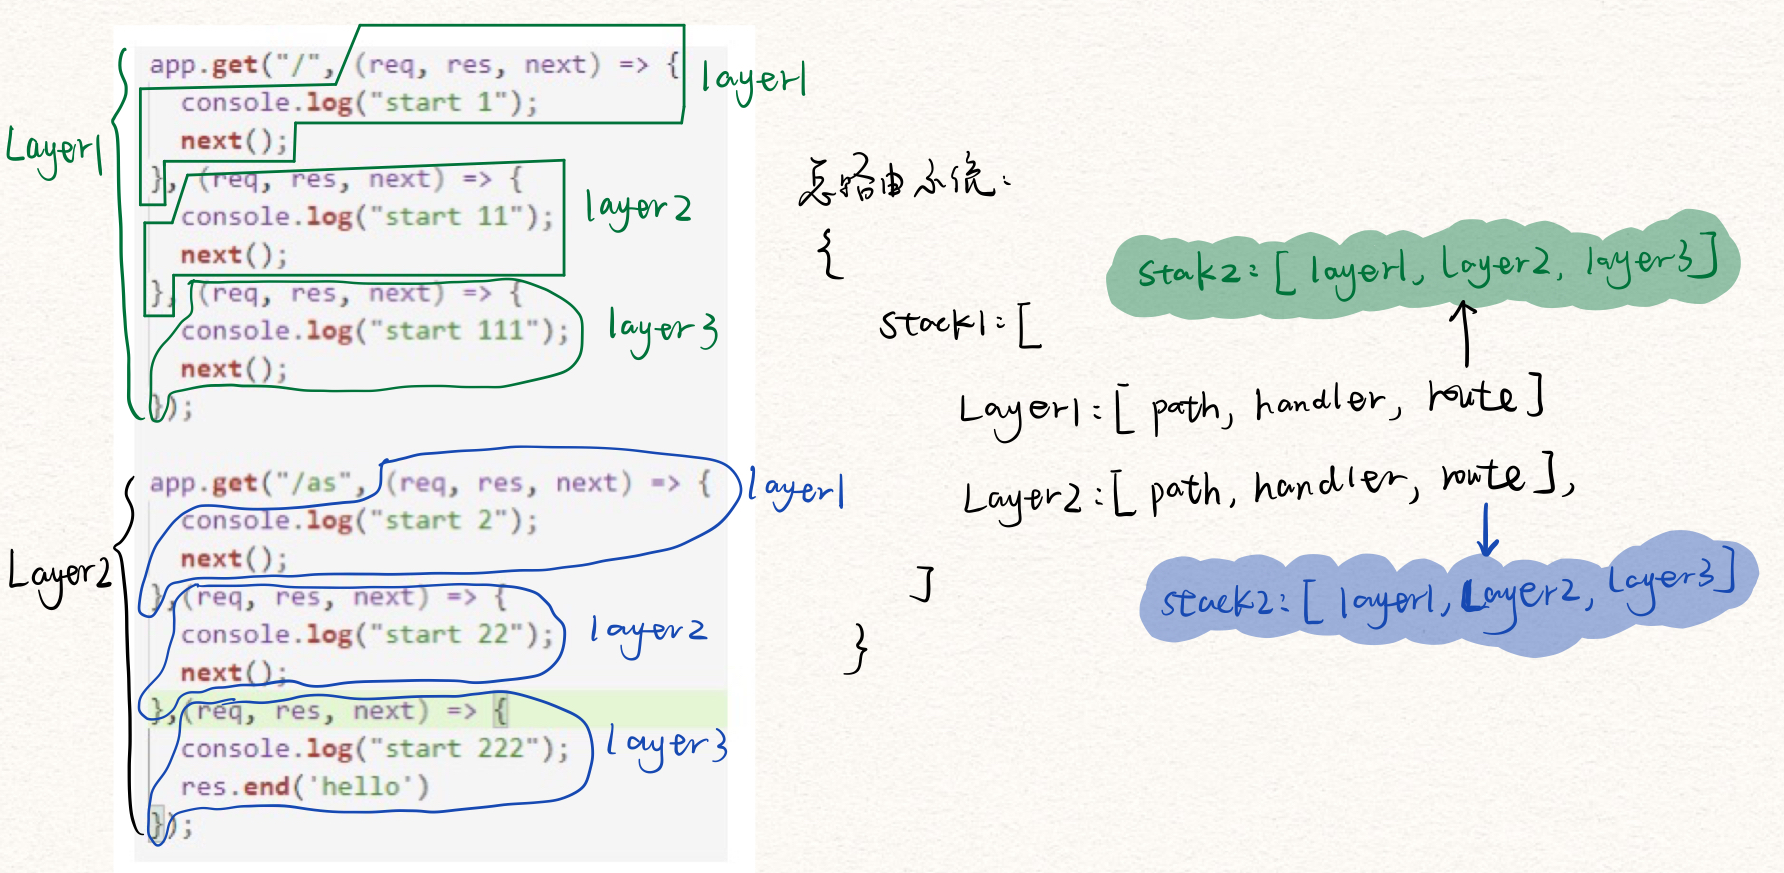 app.get("/", (req, res, next) => {
console.log("start 1");
next();
}, (req, res, next) => {
console.log("start 11");
next();
}, (req, res, next) => {
console.log("start 111");
next();
});
Layer1
layer1
layer2
layer3
app.get("/as", (req, res, next) => {
console.log("start 2");
next();
},(req, res, next) => {
console.log("start 22");
next();
},(req, res, next) => {
console.log("start 222");
res.end('hello')
});
Layer2
layer1
layer2
layer3
总路由系统:
{
stack1:[
stak2:[ layer1, Layer2, layer3]
Layer1:[ path, handler, route]
Layer2:[ path, handler, route],
stack2:[ layer1, Layer2, Layer3]
]
}